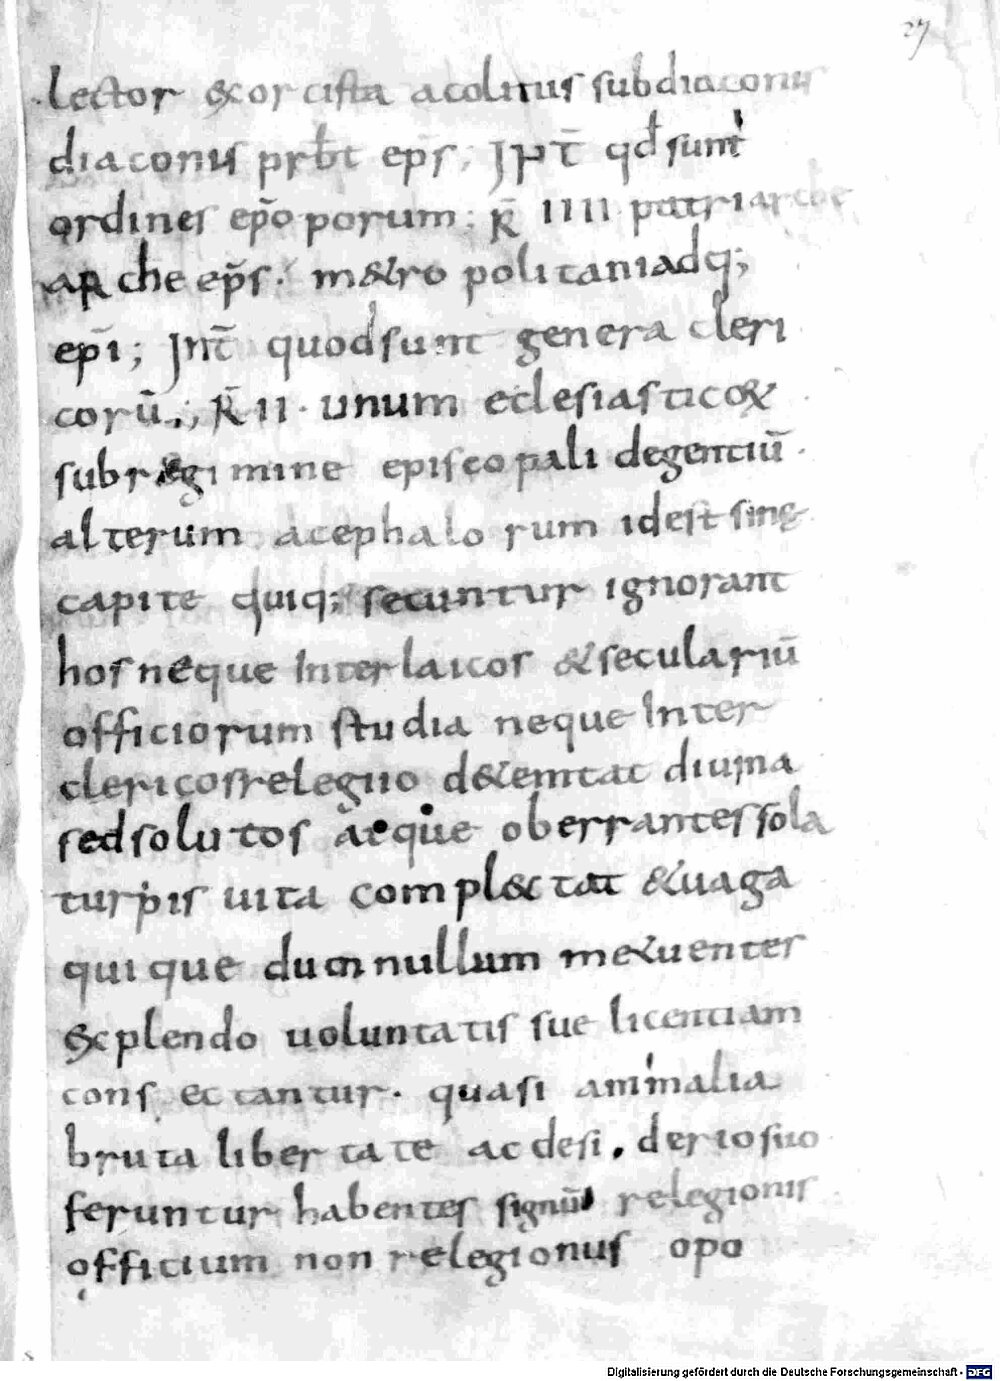 27
lector &xorcista acolitus subdiaconus
diaconus prb̄t ep̄s; Jnt̄ qđ sunt
ordines ep̄oporum: R̄ IIII patriarche
arche ep̄s. m&ropolitani adq;
ep̄i; Jnt̄ quod sunt genera cleri
corū; R̄ II. unum eclesiastico&
sub regimine episcopali degentiū.
alterum acephalorum id est sing
capite quiq; secuntur ignorant
hos neque inter laicos & seculariū
officiorum studia neque inter
clericos relegiio d&emtat diuina
sed solutos atque oberrantes sola
turpis uita compl&tat & uaga
quique dum nullum m&uentes
&xplendo uoluntatis sue licentiam
consectantur. quasi animalia
bruta libertate ac desi.derio suo
feruntur habentes signū relegionis
officium non relegionus opo
Digitalisierung gefördert durch die Deutsche Forschungsgemeinschaft - DFG